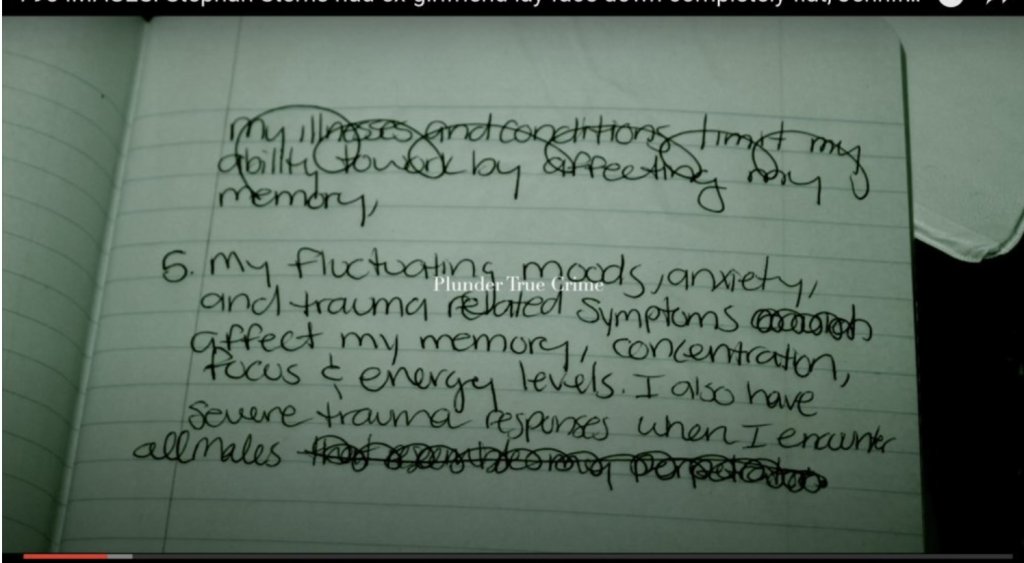 IMAGES: Stephan Sterns had ex girlfriend lay face down completely flat,
my illnesses and conditions limit my
ability to work by affecting my
memory,
5. My fluctuating moods, anxiety,
Plunder True Crime
and trauma related symptoms
affect my memory, concentration,
focus & energy levels. I also have
severe trauma responses when I encounter
all males